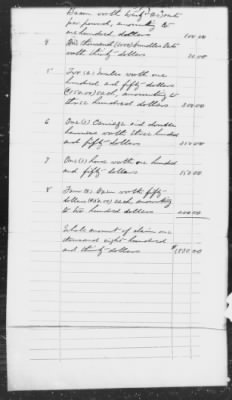 Bacon worth twenty (20) cents
per pound, amounting to
one hundred dollars 100.00
4 One thousand (1000) bundles Oats
worth thirty dollars 30.00
5 Two (2) mules worth one
hundred and fifty dollars
($150.00) each, amounting to
three hundred dollars 300.00
6 One (1) Carriage and double
harness worth three hundred
and fifty dollars 350.00
7 One (1) horse worth one hundred
and fifty dollars 150.00
8 Four (4) worth fifty
dollars ($50.00) each, amounting
to two hundred dollars 200.00
Whole amount of claim one
thousand eight hundred
and thirty dollars $1830.00